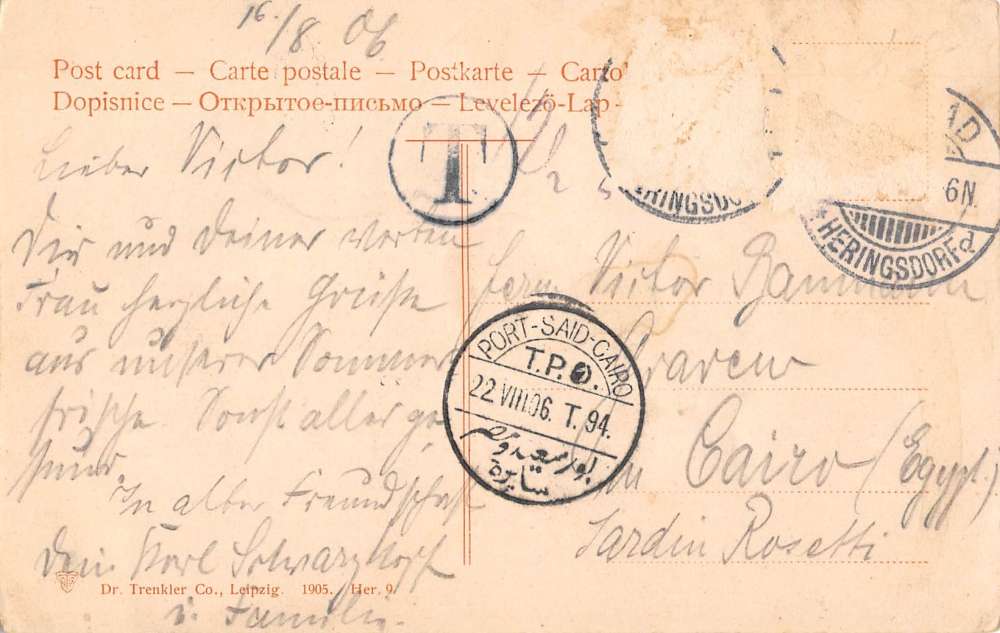 16./8 06
Post card — Carte postale — Postkarte — Carto
Dopisnice — Открытое-письмо — Levelező-Lap -
T
Lieber Victor!
Dir und Deiner werten
Frau herzliche Grüße
aus unserer Sommer
frische. Sonst alles ge
sund.
In alter Freundschaft
Dein Karl Schwarzkopf
u. Familie.
ERINGSDO
AD
6N.
HERINGSDORF d
Herrn Victor
Cairo (Egypt.)
Jardin Rosetti
PORT-SAID-CAIRO
T.P.O.
22 VIII 06. T. 94.
بور سعيد ومصر
سايرة
Dr. Trenkler Co., Leipzig. 1905. Her. 9.